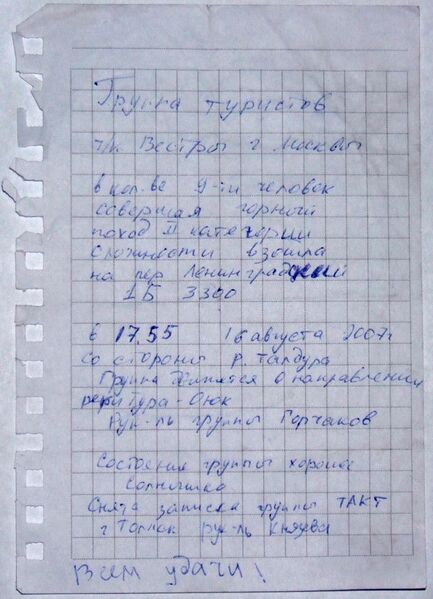 Группа туристов
т/к Вестры г Москвы
в кол-ве 9-ти человек
совершая горный
поход II категории
сложности взошла
на пер Ленинградский
1Б 3300
в 17.55 16 августа 2007г
со стороны р. Талдура
Группа движется в направлении
реки Тура-Оюк
Рук-ль группы Горчаков
Состояние группы хорошее
Солнышко
Снята записка группы ТАКТ
г рук-ль
Всем удачи!